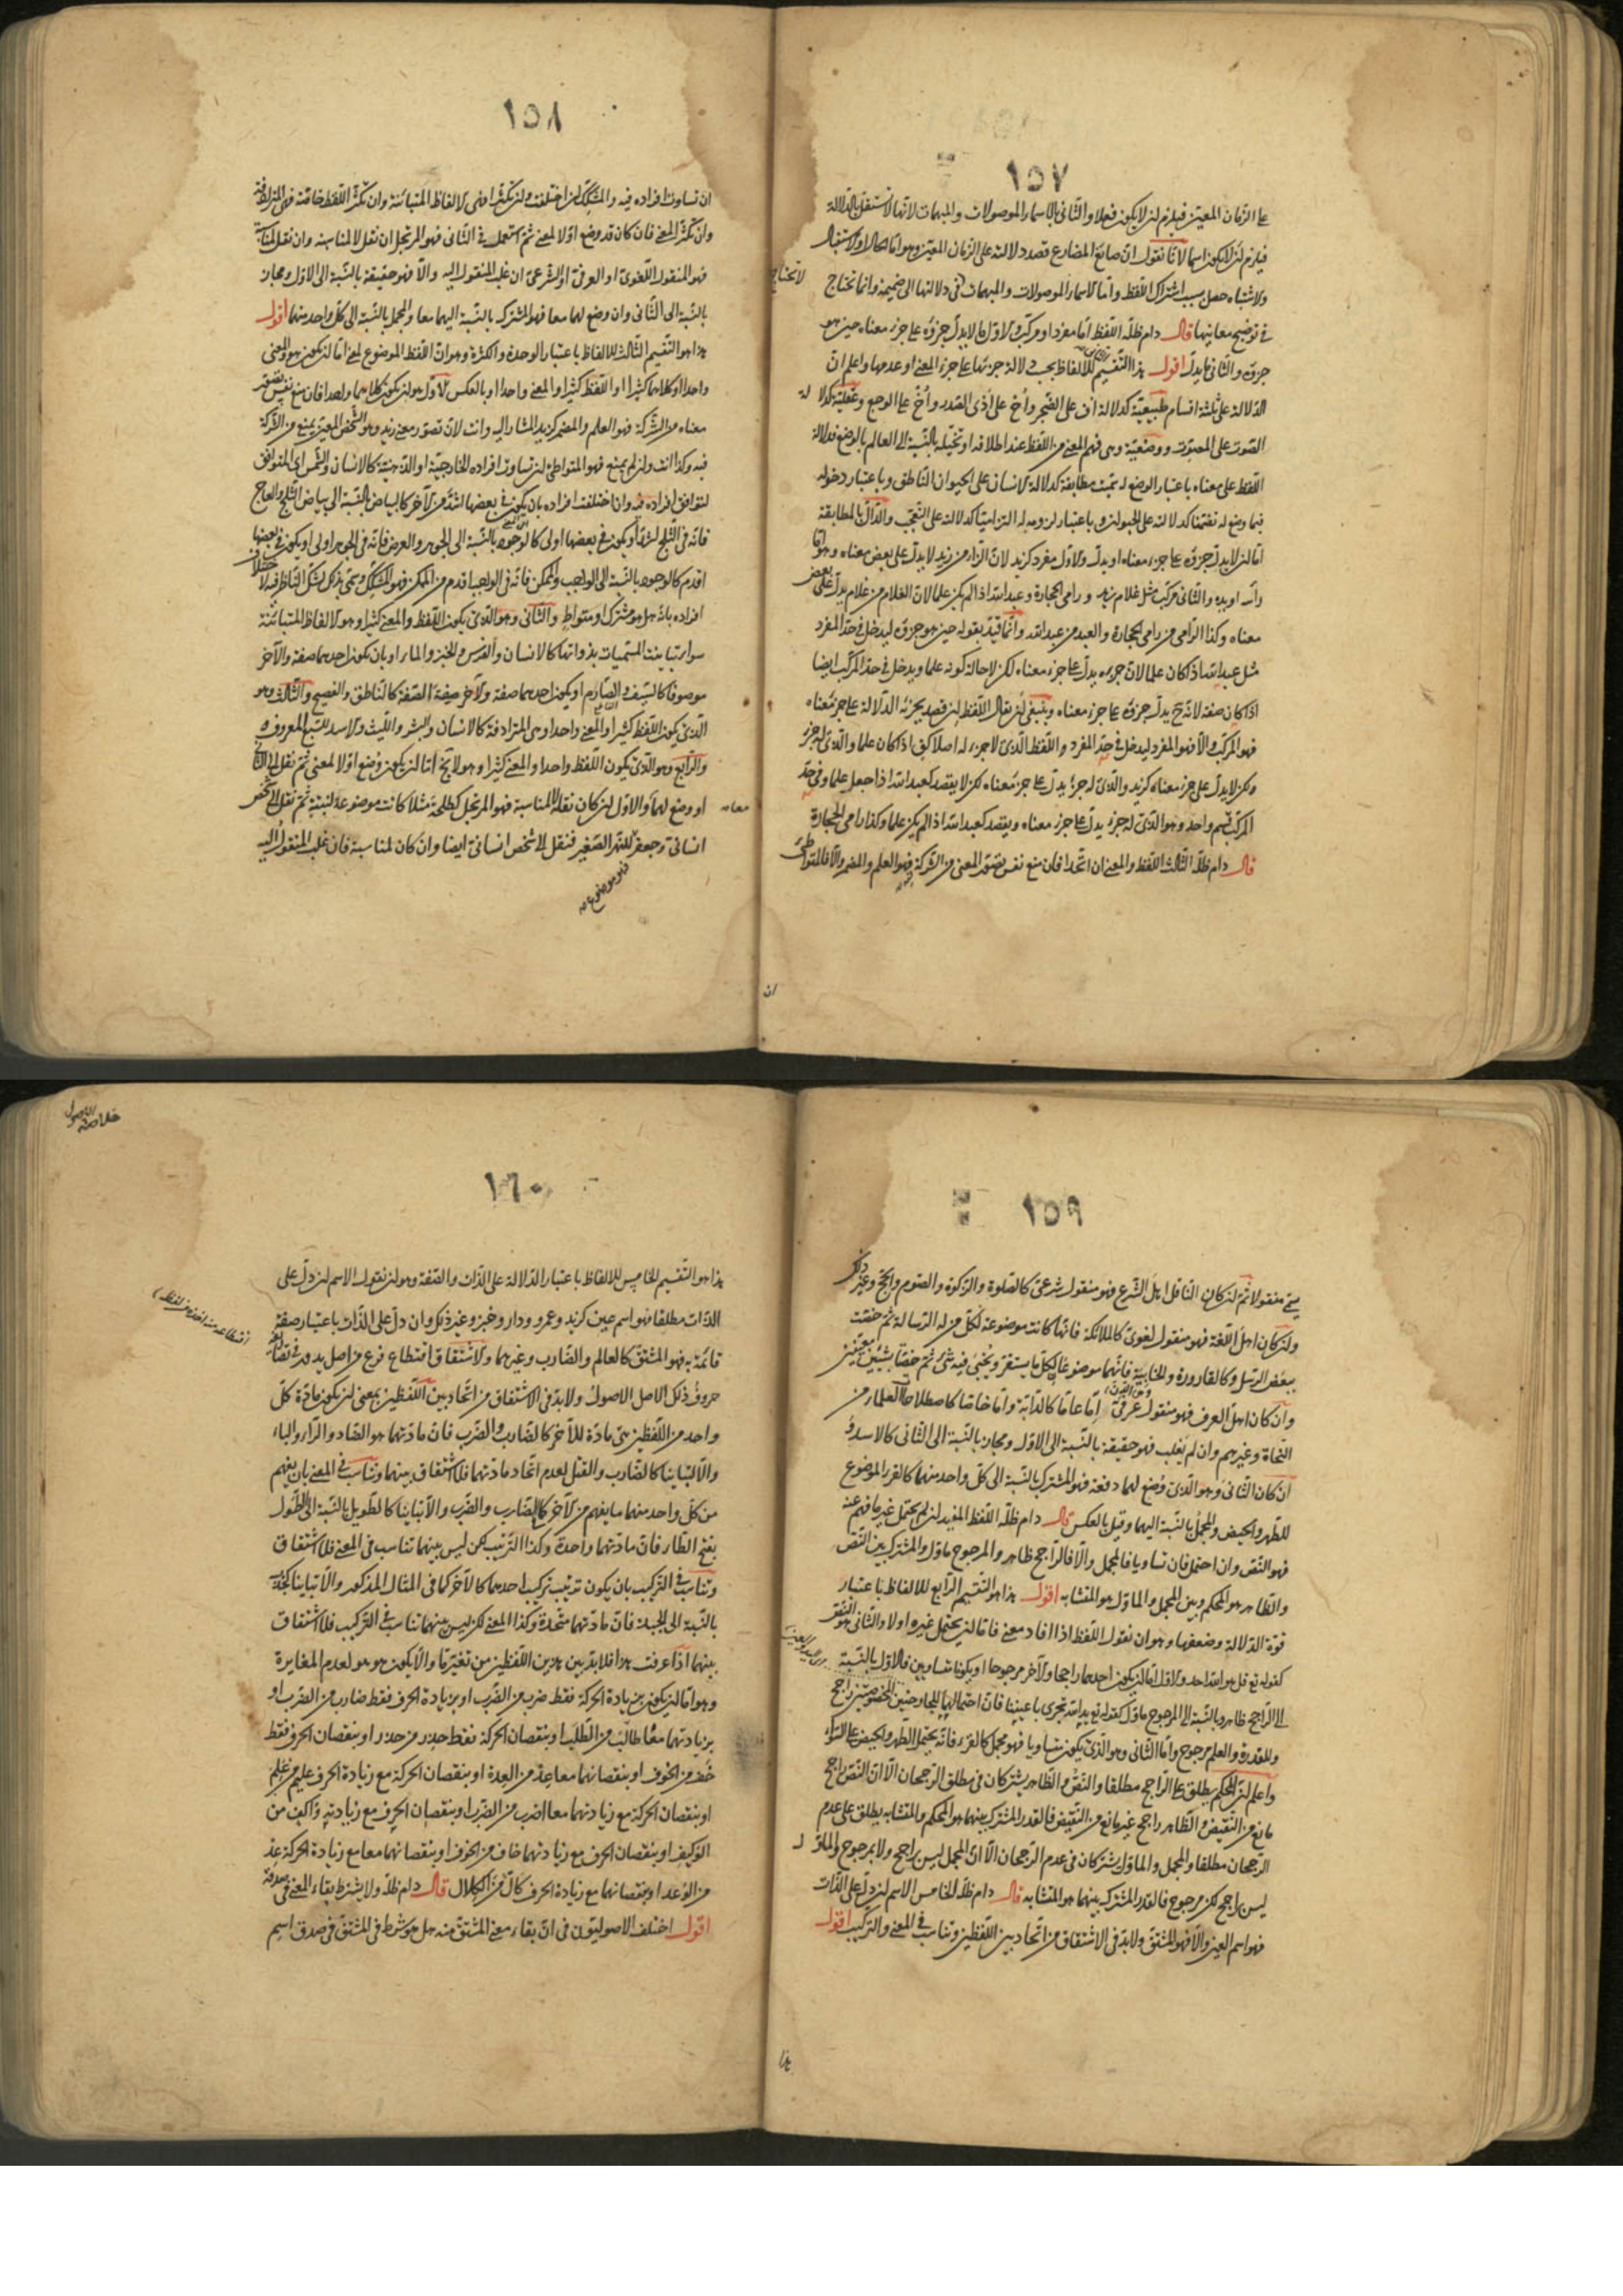 ١٥٧
على الزمان المعين فيلزم ان لا يكون فعلا والثاني بالاسماء الموصولات والمبهمات لانها لا تستقل بالدلالة
فيلزم ان لا يكون اسما لانا نقول ان صانع المضارع قصد دلالته على الزمان المعين وهو اما الحال او الاستقبال
والاشتباه حصل بسبب اشتراك اللفظ واما الاسماء الموصولات والمبهمات في دلالتها الى ضميمة وانما تحتاج
لا تحتاج
في توضيح معانيها قال دام ظله اللفظ اما مفرد او مركب والاول ما لا يدل جزؤه على جزء معناه حين هو
جزؤه والثاني ما يدل اقول هذا التقسيم للالفاظ بحسب دلالة جزئها على جزء المعنى او عدمها واعلم ان
الدلالة على ثلثة اقسام طبيعية كدلالة اف على الضجر واح على اذى الصدر واخ على الوجع وعقلية كدلالة
الصوت على المصوت ووضعية وهي فهم المعنى من اللفظ عند اطلاقه او تخيله بالنسبة الى العالم بالوضع فدلالة
اللفظ على معناه باعتبار الوضع له سميت مطابقة كدلالة الانسان على الحيوان الناطق وباعتبار دخوله
فيما وضع له تضمنا كدلالته على الحيوان وباعتبار لزومه له التزاميا كدلالته على التعجب والدال بالمطابقة
اما ان لا يدل جزؤه على جزء معناه او يدل والاول مفرد كزيد لان الزاء من زيد لا يدل على بعض معناه وهو اما
رأسه او يده والثاني مركب مثل غلام زيد ورامي الحجارة وعبد الله اذا لم يكن علما لان الغلام من غلام يدل على بعض
معناه وكذا الرامي من رامي الحجارة والعبد من عبد الله وانما قيد بقوله حين هو جزؤه ليدخل في حد المفرد
مثل عبد الله اذا كان علما لان جزءه يدل على جزء معناه لكن لا حالة كونه علما ويدخل في حد المركب ايضا
اذا كان صفة لانه ح يدل جزؤه على جزء معناه وينبغي ان يقال اللفظ ان قصد بجزئه الدلالة على جزء معناه
فهو المركب والا فهو المفرد ليدخل في حد المفرد واللفظ الذي لا جزء له اصلا كق اذا كان علما والذي له جزء
ولكن لا يدل على جزء معناه كزيد والذي له جزء يدل على جزء معناه لكن لا يقصد كعبد الله اذا جعل علما وفي حد
المركب قسم واحد وهو الذي له جزء يدل على جزء معناه ويقصد كعبد الله اذا لم يكن علما وكذا رامي الحجارة
قال دام ظله الثالث اللفظ والمعنى ان اتحدا فان منع نفس تصور المعنى من الشركة فهو العلم والمضمر والا فالمتواطئ
ان
١٥٨
ان تساوت افراده فيه والمشكك ان اختلفت وان تكثرا فهي الالفاظ المتباينة وان تكثر اللفظ خاصة فهي المترادفة
وان تكثر المعنى فان كان قد وضع اولا لمعنى ثم استعمل في الثاني فهو المرتجل ان نقل لا لمناسبة وان نقل لمناسبة
فهو المنقول اللغوي او العرفي او الشرعي ان غلب المنقول اليه والا فهو حقيقة بالنسبة الى الاول ومجاز
بالنسبة الى الثاني وان وضع لهما معا فهو المشترك بالنسبة اليهما معا والمجمل بالنسبة الى كل واحد منهما اقول
هذا هو التقسيم الثالث للالفاظ باعتبار الوحدة والكثرة وهو ان اللفظ الموضوع لمعنى اما ان يكون هو والمعنى
واحدا او كلاهما كثيرا او اللفظ كثيرا والمعنى واحدا او بالعكس الاول هو ان يكون كلاهما واحدا فان منع نفس تصور
معناه من الشركة فهو العلم والمضمر كزيد المشار اليه وانت لان تصور معنى زيد وهو الشخص المعين يمنع من الشركة
فيه وكذا انت وان لم يمنع فهو المتواطئ ان تساوت افراده الخارجية او الذهنية كالانسان والشمس اي المتوافق
لتوافق افراده فيه وان اختلفت افراده بان يكون في بعضها اشد من الآخر كالبياض بالنسبة الى بياض الثلج والعاج
فانه في الثلج اشد او يكون في بعضها اولى كالوجود بالنسبة الى الجوهر والعرض فانه في الجوهر اولى او يكون في بعضها
اقدم كالوجود بالنسبة الى الواجب والممكن فانه في الواجب اقدم من الممكن فهو المشكك وسمي بذلك لشك الناظر فيه لاختلاف
افراده بانه هل هو مشترك او متواطئ والثاني وهو الذي يكون اللفظ والمعنى كثيرا وهو الالفاظ المتباينة
سواء تباينت المسميات بذواتها كالانسان والفرس والخبز والماء او بان يكون احدهما صفة والآخر
موصوفا كالسيف والصارم او يكون احدهما صفة والآخر صفة الصفة كالناطق والفصيح والثالث وهو
الذي يكون اللفظ كثيرا والمعنى واحدا وهي المترادفة كالانسان والبشر والليث والاسد للسبع المعروف
والرابع وهو الذي يكون اللفظ واحدا والمعنى كثيرا وهو لا يخ اما ان يكون وضع اولا لمعنى ثم نقل الى الثاني
او وضع لهما والاول ان كان نقله لا لمناسبة فهو المرتجل كطلحة مثلا كانت موضوعة لنبتة ثم نقل الى شخص
معا
انساني وجعفر للنهر الصغير فنقل الى شخص انساني ايضا وان كان لمناسبة فان غلب المنقول اليه
فهو موضوع
١٥٩
سمي منقولا ثم ان كان الناقل اهل الشرع فهو منقول شرعي كالصلوة والزكوة والصوم والحج وغير ذلك
وان كان اهل اللغة فهو منقول لغوي كالملائكة فانها كانت موضوعة لكل من له الرسالة ثم خصت
ببعض الرسل وكالقارورة والخابية فانهما موضوعتان لكل ما يستقر ويخبى فيه شئ ثم خصتا بشيئين معينين
وان كان اهل العرف فهو منقول عرفي اما عاما كالدابة واما خاصا كاصطلاحات العلماء من
النحاة وغيرهم وان لم يغلب فهو حقيقة بالنسبة الى الاول ومجاز بالنسبة الى الثاني كالاسد و
ان كان الثاني وهو الذي وضع لهما دفعة فهو المشترك بالنسبة الى كل واحد منهما كالقرء الموضوع
للطهر والحيض والمجمل بالنسبة اليهما وقيل بالعكس قال دام ظله اللفظ المفيد ان لم يحتمل غير ما فهم عنه
فهو النص وان احتمل فان تساويا فالمجمل والا فالراجح ظاهر والمرجوح ماؤل والمشترك بين النص
والظاهر هو المحكم وبين المجمل والماؤل هو المتشابه اقول هذا هو التقسيم الرابع للالفاظ باعتبار
قوة الدلالة وضعفها وهو ان نقول اللفظ اذا افاد معنى فاما ان يحتمل غيره اولا والثاني هو النص
كقوله تع قل هو الله احد والاول اما ان يكون احدهما راجحا والآخر مرجوحا او يكونا متساويين فالاول بالنسبة
الى الراجح ظاهر وبالنسبة الى المرجوح ماؤل كقوله تع يد الله تجري باعيننا فان احتمالها للجارحتين المخصوصتين راجح
وللقدرة والعلم مرجوح واما الثاني وهو الذي يكون متساويا فهو مجمل كالقرء فانه يحتمل الطهر والحيض على السواء
واعلم ان المحكم يطلق على الراجح مطلقا والنص والظاهر يشتركان في مطلق الرجحان الا ان النص راجح
مانع من النقيض والظاهر راجح غير مانع من النقيض فالقدر المشترك بينهما هو المحكم والمتشابه يطلق على عدم
الرجحان مطلقا والمجمل والماؤل يشتركان في عدم الرجحان الا ان المجمل ليس براجح ولا بمرجوح والماؤل
ليس براجح لكن مرجوح فالقدر المشترك بينهما هو المتشابه قال دام ظله الخامس الاسم ان دل على الذات
فهو اسم العين والا فهو المشتق ولا بد في الاشتقاق من اتحاد بين اللفظين وتناسب في المعنى والتركيب اقول
هذا
خلاصة الاصول
١٦٠
هذا هو التقسيم الخامس للالفاظ باعتبار الدلالة على الذات والصفة وهو ان نقول الاسم ان دل على
الذات مطلقا فهو اسم عين كزيد وعمرو ودار وخبز وغير ذلك وان دل على الذات باعتبار صفة
قائمة به فهو المشتق كالعالم والضارب وغيرهما والاشتقاق اقتطاع فرع من اصل يدور في تصاريفه
حروف ذلك الاصل الاصول ولا بد في الاشتقاق من اتحاد بين اللفظين بمعنى ان يكون مادة كل
واحد من اللفظين هي مادة للآخر كالضارب والضرب فان مادتهما هو الضاد والراء والباء
والا لتباينا كالضارب والقتل لعدم اتحاد مادتهما فلا اشتقاق بينهما وتناسب في المعنى بان يفهم
من كل واحد منهما ما يفهم من الآخر كالضارب والضرب والا تباينا كالطويل بالنسبة الى الطول
بفتح الطاء فان مادتهما واحدة وكذا الترتيب لكن ليس بينهما تناسب في المعنى فلا اشتقاق
وتناسب في التركيب بان يكون ترتيب تركيب احدهما كالآخر كما في المثال المذكور والا تباينا كجذب
بالنسبة الى الجبذ فان مادتهما متحدة وكذا المعنى لكن ليس بينهما تناسب في التركيب فلا اشتقاق
بينهما اذا عرفت هذا فلا بد بين هذين اللفظين من تغير ما والا لكون هو هو لعدم المغايرة
وهو اما ان يكون بزيادة الحركة فقط ضرب من الضرب او بزيادة الحرف فقط ضارب من الضرب او
بزيادتهما معا طالب من الطلب او بنقصان الحركة فقط حذر من حذر او بنقصان الحرف فقط
خف من الخوف او بنقصانهما معا عد من العدة او بنقصان الحركة مع زيادة الحرف عليم من علم
او بنقصان الحركة مع زيادتهما معا اضرب من الضرب او بنقصان الحرف مع زيادته واكف من
الوكيف او بنقصان الحرف مع زيادتهما خاف من الخوف او بنقصانهما معا مع زيادة الحركة عد
من الوعد او بنقصانهما مع زيادة الحرف كال من الكلال قال دام ظله ولا يشترط بقاء المعنى في صدقه
اقول اختلف الاصوليون في ان بقاء معنى المشتق منه هل هو شرط في المشتق في صدق اسم